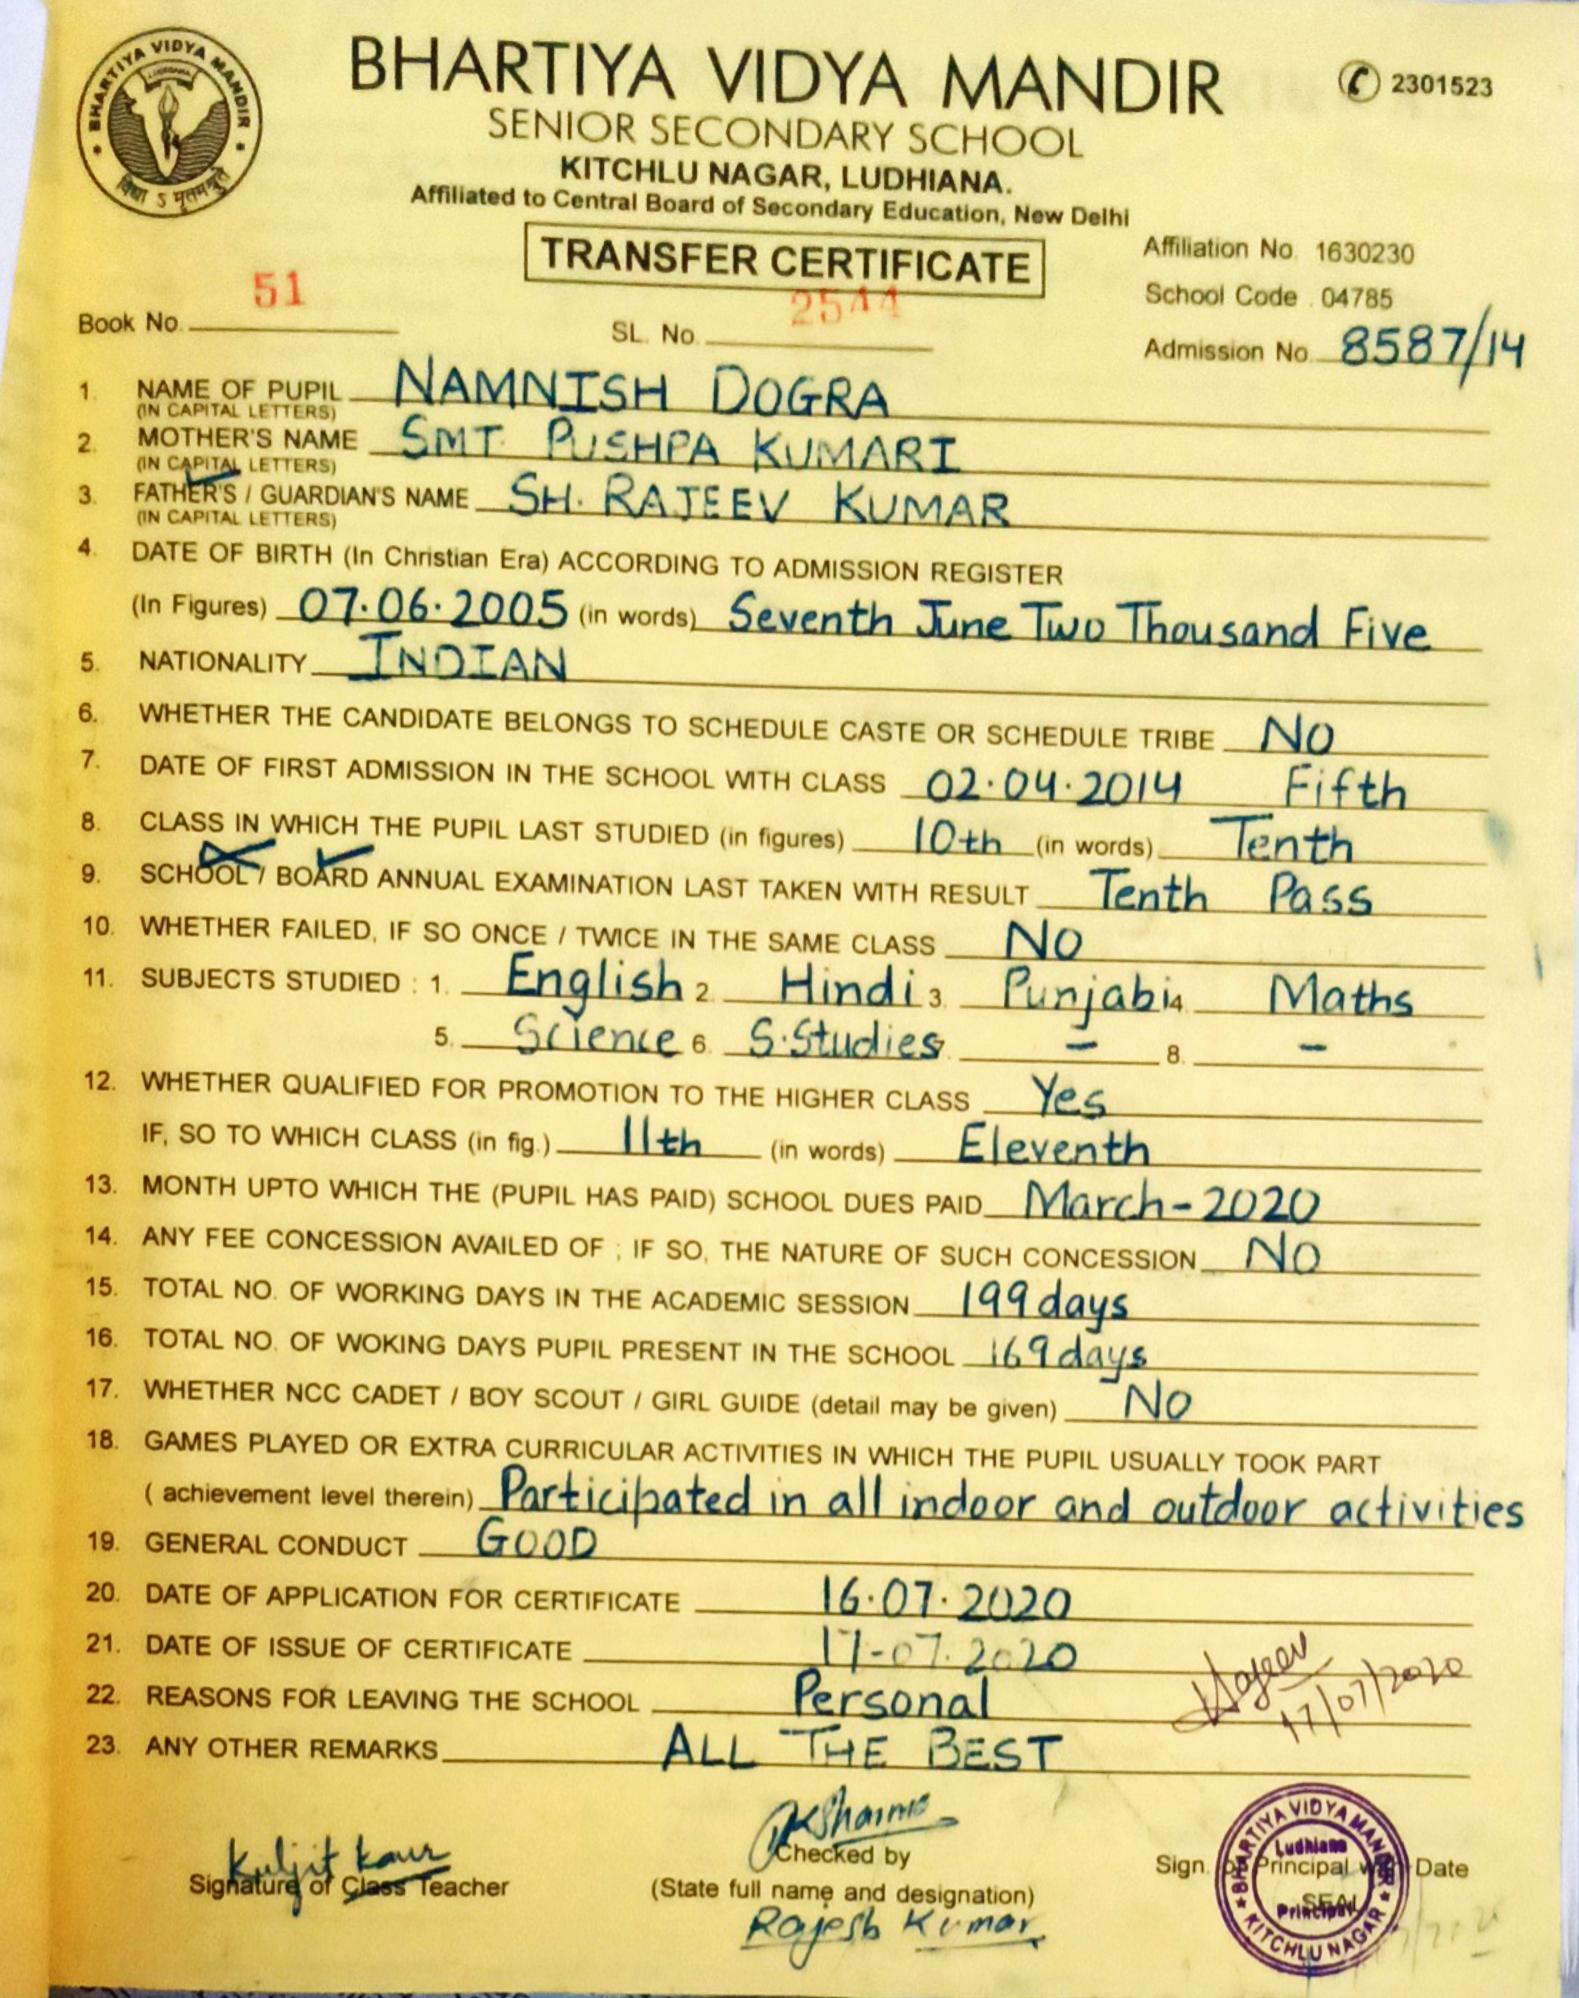 BHARTIYA VIDYA MANDIR
BHARTIYA VIDYA MANDIR
LUDHIANA
2301523
SENIOR SECONDARY SCHOOL
KITCHLU NAGAR, LUDHIANA.
Affiliated to Central Board of Secondary Education, New Delhi
TRANSFER CERTIFICATE
Affiliation No. 1630230
School Code . 04785
Book No. 51
SL. No. 2544
Admission No. 8587/14
1. NAME OF PUPIL NAMNISH DOGRA
(IN CAPITAL LETTERS)
2. MOTHER'S NAME SMT. PUSHPA KUMARI
(IN CAPITAL LETTERS)
3. FATHER'S / GUARDIAN'S NAME SH. RAJEEV KUMAR
(IN CAPITAL LETTERS)
4. DATE OF BIRTH (In Christian Era) ACCORDING TO ADMISSION REGISTER
(In Figures) 07.06.2005 (in words) Seventh June Two Thousand Five
5. NATIONALITY INDIAN
6. WHETHER THE CANDIDATE BELONGS TO SCHEDULE CASTE OR SCHEDULE TRIBE NO
7. DATE OF FIRST ADMISSION IN THE SCHOOL WITH CLASS 02.04.2014 Fifth
8. CLASS IN WHICH THE PUPIL LAST STUDIED (in figures) 10th (in words) Tenth
9. SCHOOL / BOARD ANNUAL EXAMINATION LAST TAKEN WITH RESULT Tenth Pass
10. WHETHER FAILED, IF SO ONCE / TWICE IN THE SAME CLASS NO
11. SUBJECTS STUDIED : 1. English 2. Hindi 3. Punjabi 4. Maths
5. Science 6. S.Studies 7. - 8. -
12. WHETHER QUALIFIED FOR PROMOTION TO THE HIGHER CLASS Yes
IF, SO TO WHICH CLASS (in fig.) 11th (in words) Eleventh
13. MONTH UPTO WHICH THE (PUPIL HAS PAID) SCHOOL DUES PAID March-2020
14. ANY FEE CONCESSION AVAILED OF ; IF SO, THE NATURE OF SUCH CONCESSION NO
15. TOTAL NO. OF WORKING DAYS IN THE ACADEMIC SESSION 199 days
16. TOTAL NO. OF WOKING DAYS PUPIL PRESENT IN THE SCHOOL 169 days
17. WHETHER NCC CADET / BOY SCOUT / GIRL GUIDE (detail may be given) NO
18. GAMES PLAYED OR EXTRA CURRICULAR ACTIVITIES IN WHICH THE PUPIL USUALLY TOOK PART
( achievement level therein) Participated in all indoor and outdoor activities
19. GENERAL CONDUCT GOOD
20. DATE OF APPLICATION FOR CERTIFICATE 16.07.2020
21. DATE OF ISSUE OF CERTIFICATE 17-07.2020
22. REASONS FOR LEAVING THE SCHOOL Personal
Rajeev
17/07/2020
23. ANY OTHER REMARKS ALL THE BEST
Kuljit Kaur
Signature of Class Teacher
RKSharma
Checked by
(State full name and designation)
Rajesh Kumar
Sign. of Principal with Date
SEAL
BHARTIYA VIDYA MANDIR
Ludhiana
Principal
KITCHLU NAGAR